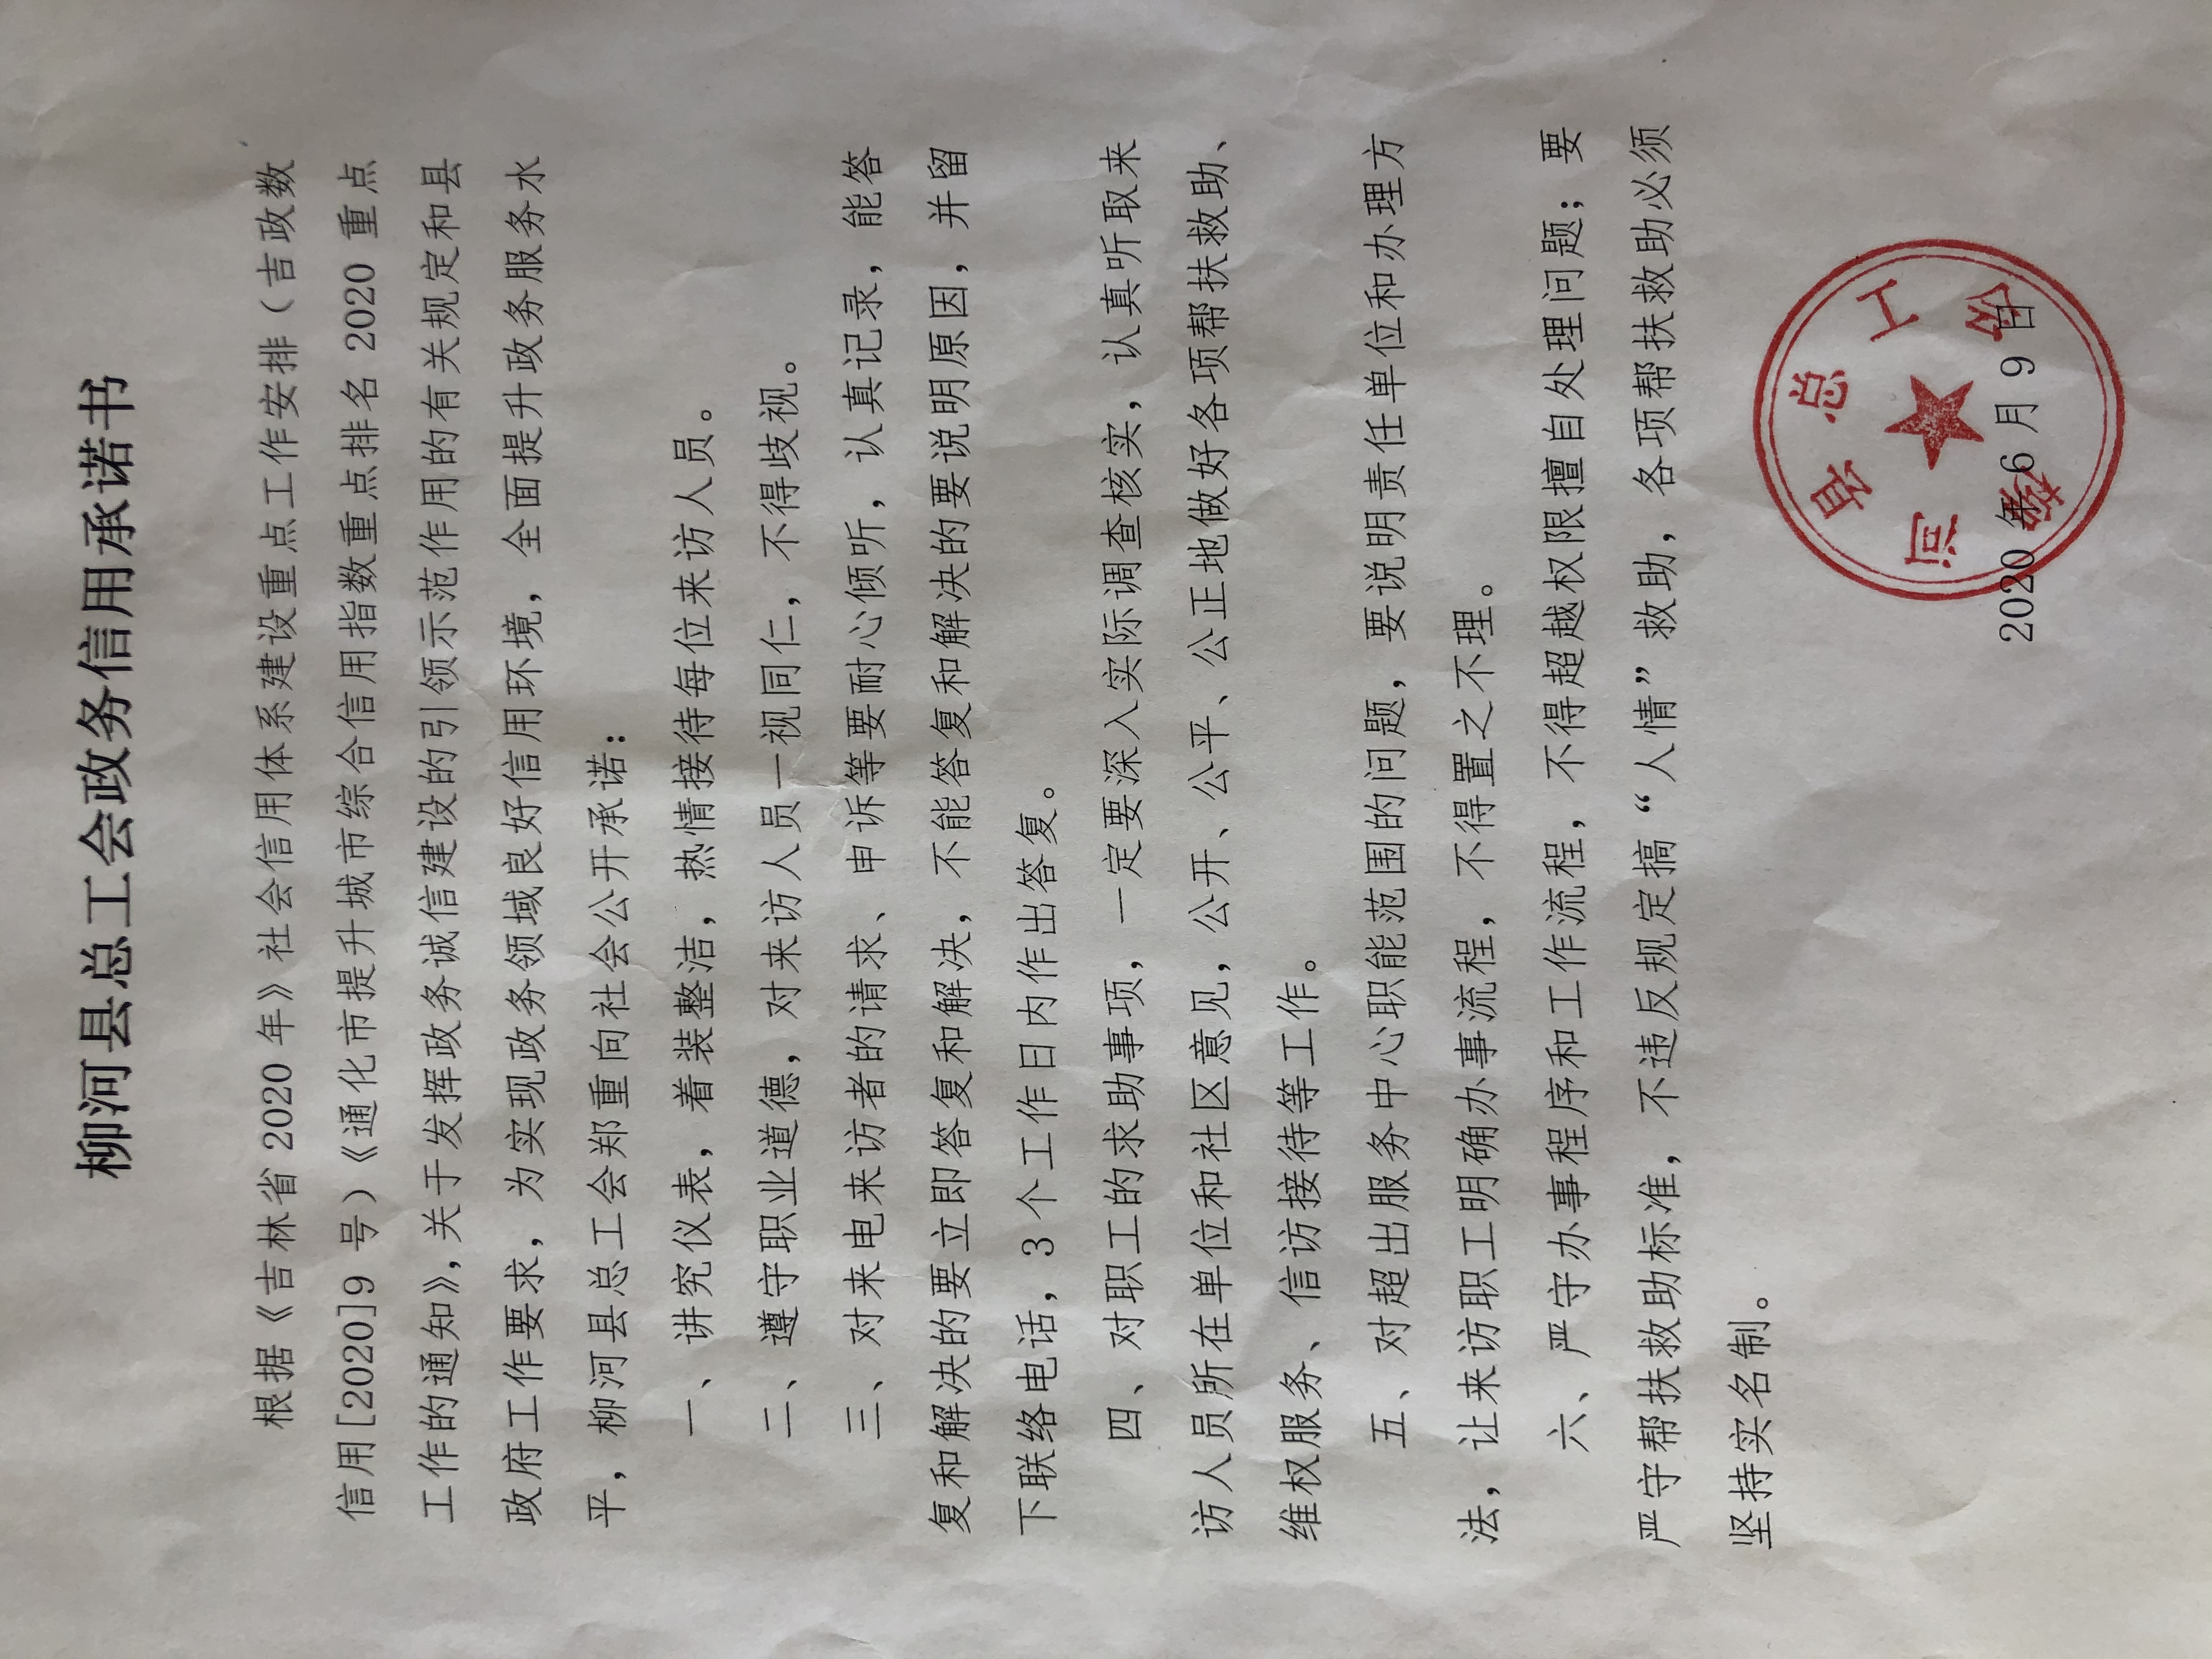 柳河县总工会政务信用承诺书
根据《吉林省 2020 年》社会信用体系建设重点工作安排（吉政数
信用[2020]9 号）《通化市提升城市综合信用指数重点排名 2020 重点
工作的通知》，关于发挥政务诚信建设的引领示范作用的有关规定和县
政府工作要求，为实现政务领域良好信用环境，全面提升政务服务水
平，柳河县总工会郑重向社会公开承诺：
一、讲究仪表，着装整洁，热情接待每位来访人员。
二、遵守职业道德，对来访人员一视同仁，不得歧视。
三、对来电来访者的请求、申诉等要耐心倾听，认真记录，能答
复和解决的要立即答复和解决，不能答复和解决的要说明原因，并留
下联络电话，3 个工作日内作出答复。
四、对职工的求助事项，一定要深入实际调查核实，认真听取来
访人员所在单位和社区意见，公开、公平、公正地做好各项帮扶救助、
维权服务、信访接待等工作。
五、对超出服务中心职能范围的问题，要说明责任单位和办理方
法，让来访职工明确办事流程，不得置之不理。
六、严守办事程序和工作流程，不得超越权限擅自处理问题；要
严守帮扶救助标准，不违反规定搞“人情”救助，各项帮扶救助必须
坚持实名制。
柳河省总工会
2020 年 6 月 9 日